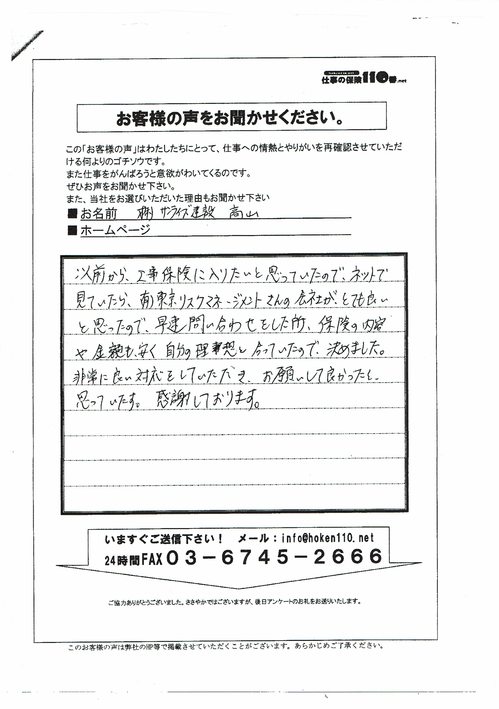 仕事の保険110番.net
お客様の声をお聞かせください。
この「お客様の声」はわたしたちにとって、仕事への情熱とやりがいを再確認させていただ
ける何よりのゴチソウです。
また仕事をがんばろうと意欲がわいてくるのです。
ぜひお声をお聞かせ下さい。
また、当社をお選びいただいた理由もお聞かせ下さい
■お名前 ㈱サンライズ建設 高山
■ホームページ
以前から、工事保険に入りたいと思っていたので、ネットで
見ていたら、㈲東京リスクマネージメントさんの会社がとても良い
と思ったので、早速問い合わせをした所、保険の内容
や金額も安く自分の理想と合っていたので、決めました。
非常に良い対応をしていただき、お願いして良かったと
思っています。感謝しております。
いますぐご送信下さい! メール:info@hoken110.net
24時間FAX03-6745-2666
ご協力ありがとうございました。ささやかではございますが、後日アンケートのお礼をお送りいたします。
このお客様の声は弊社のHP等で掲載させていただくことがございます。あらかじめご了承ください。